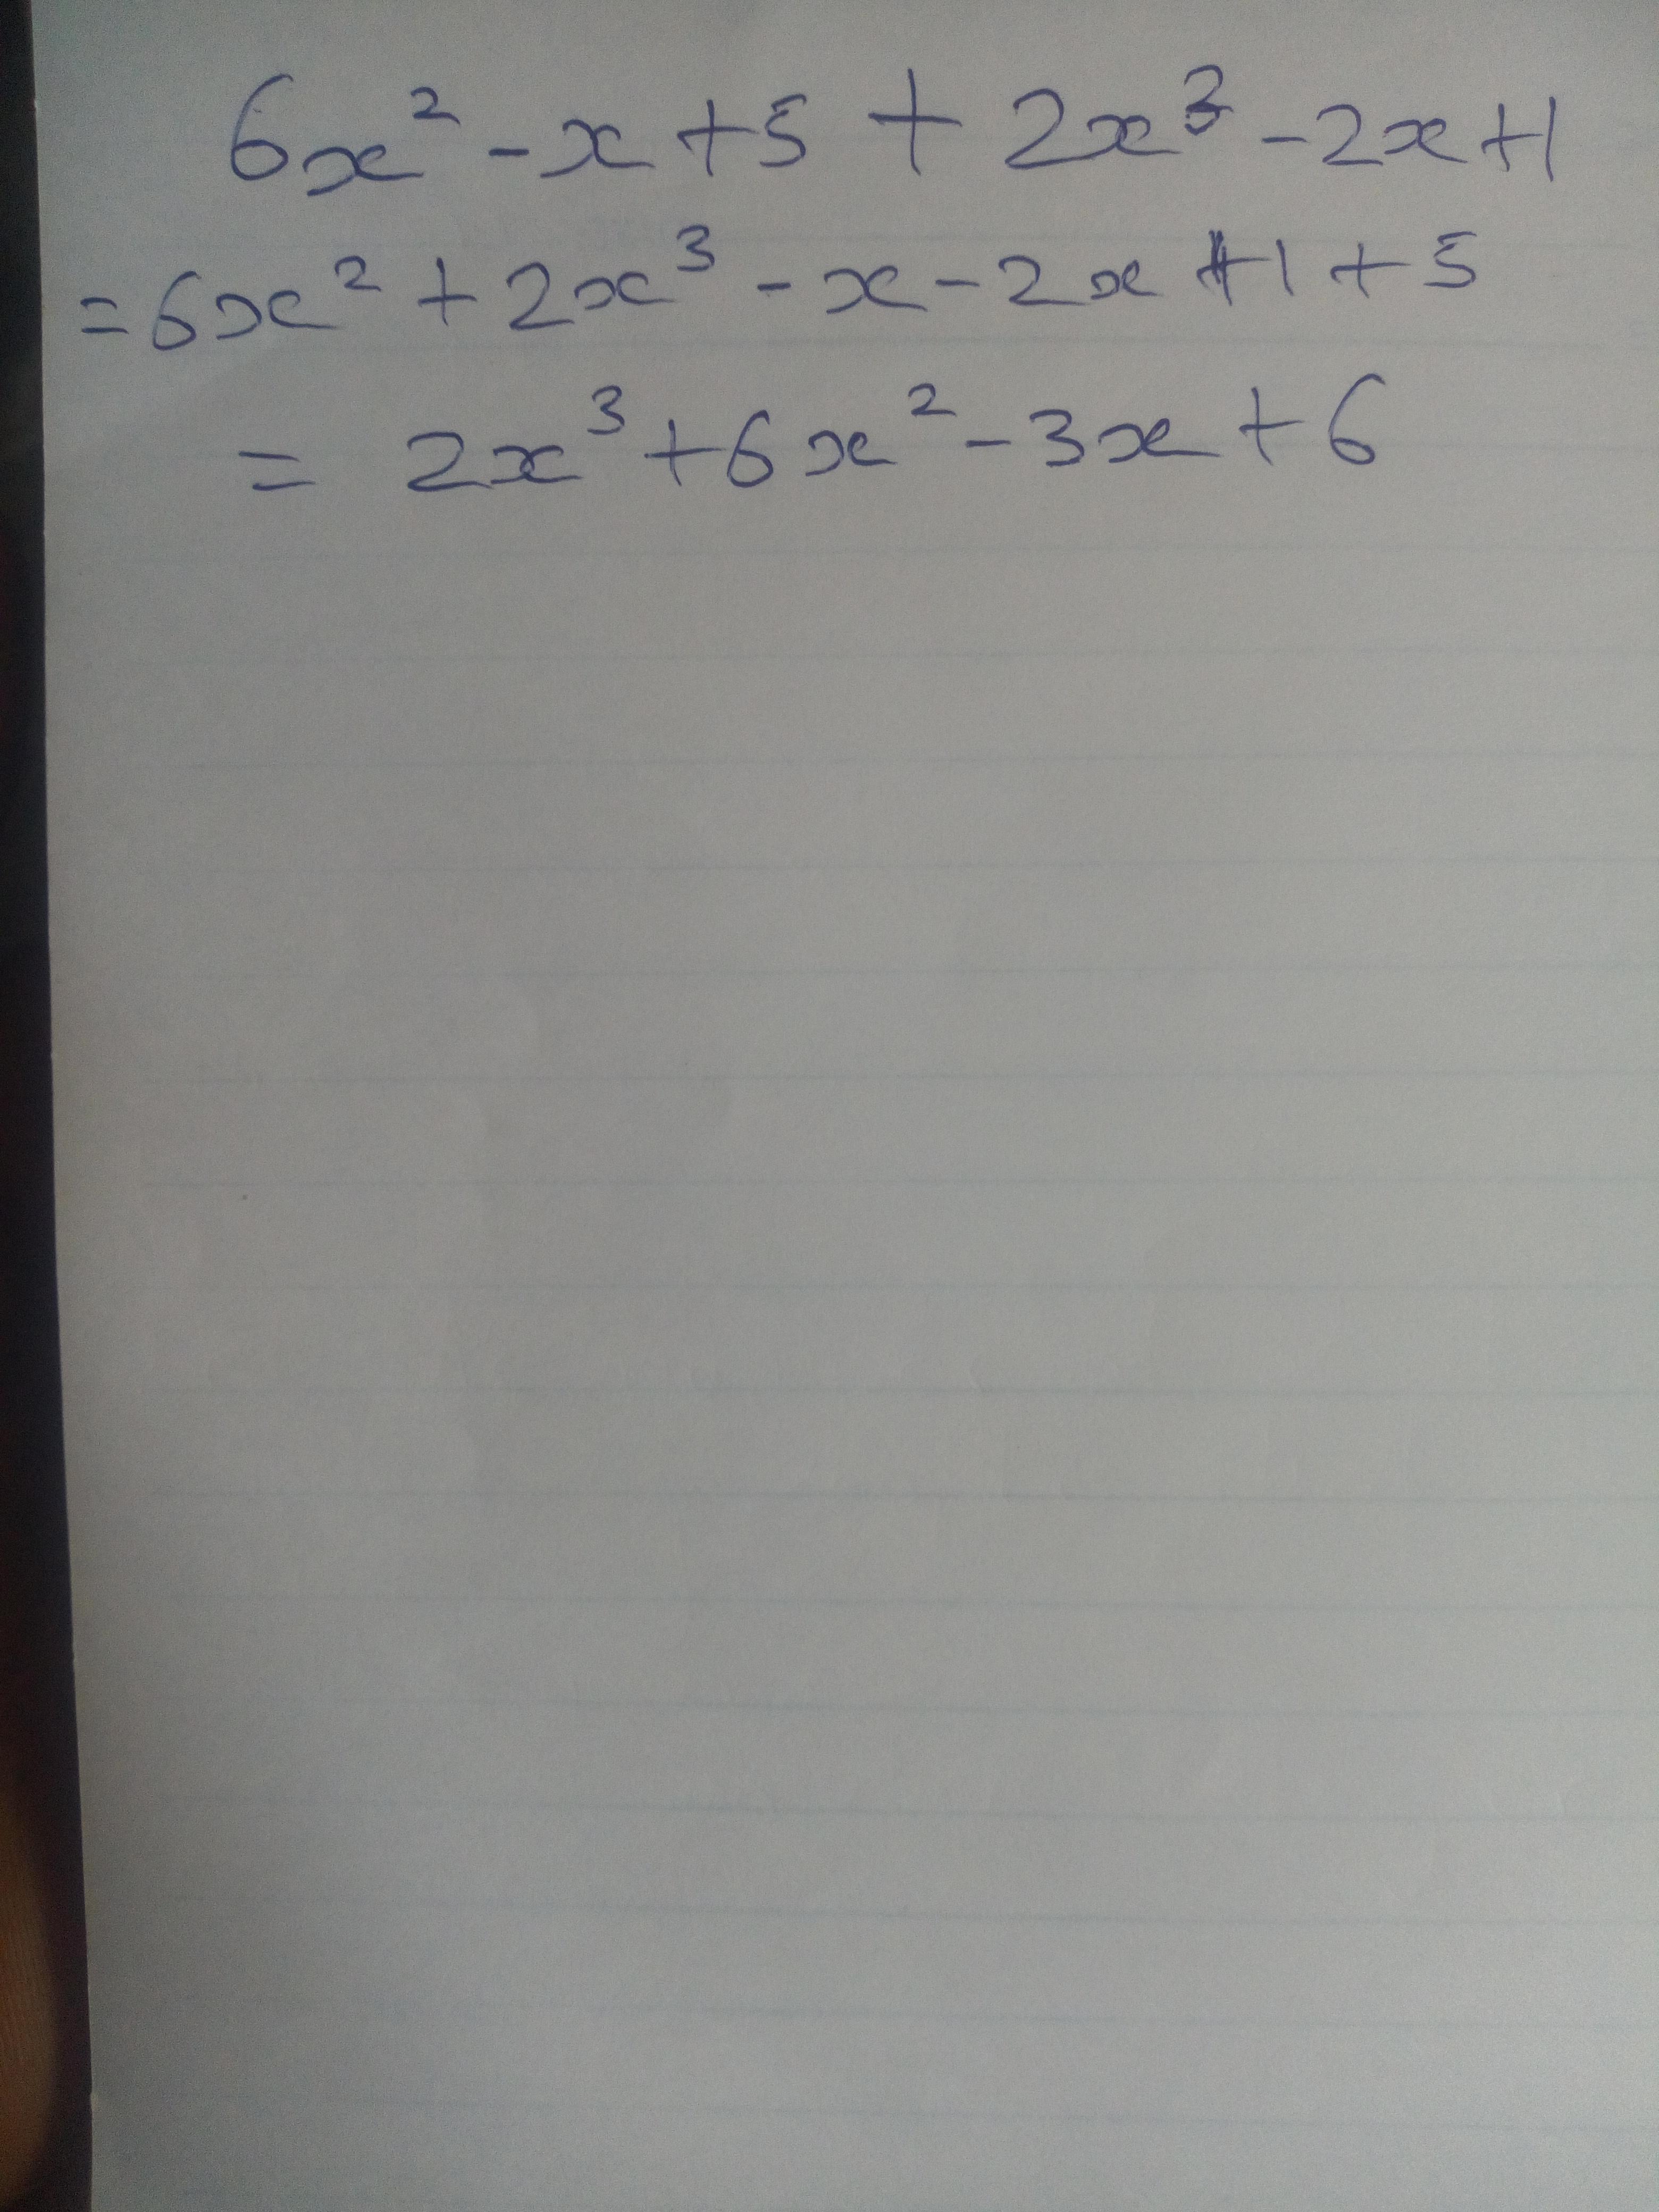 6x² - x + 5 + 2x³ - 2x + 1
= 6x² + 2x³ - x - 2x + 1 + 5
= 2x³ + 6x² - 3x + 6